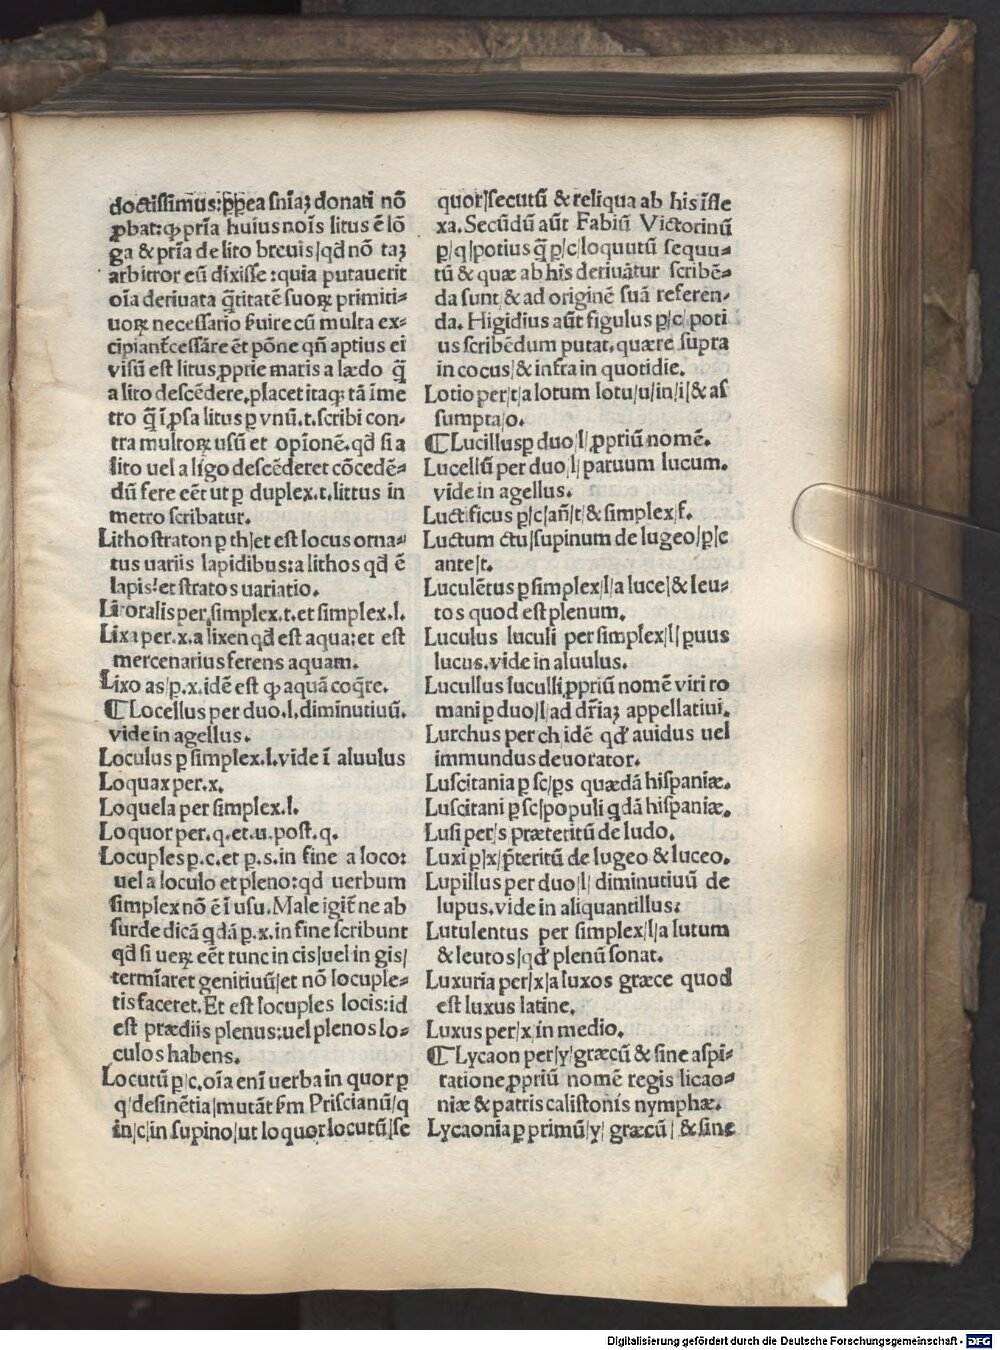 doctissimus:ꝓpea sniaꝫ donati nõ
ꝓbat:ꝙ pria huius nois litus ē lõ
ga & pria de lito breuis|qđ nõ taꝫ
arbitror eũ dixisse:quia putauerit
oia deriuata q̃titatē suoꝝ primiti⸗
uoꝝ necessario ẜuire cũ multa ex⸗
cipiant̃cessãre ēt põne qñ aptius ei
visũ est litus ꝓprie maris a lædo q̃
a lito descēdere.placet itaqꝫ tã ĩ me
tro q̃ ĩ ꝓsa litus ꝑ vnũ.t.scribi con⸗
tra multoꝝ usũ et opiõnē.qđ si a
lito uel a ligo descēderet cõcedē⸗
dũ fere eēt ut ꝑ duplex.t.littus in
metro scribatur.
Lithostraton ꝑ th|et est locus orna⸗
tus uariis lapidibus:a lithos qđ ē
lapis:et stratos uariatio.
Litoralis per simplex.t.et simplex.l.
Lixa per.x.a lixen qđ est aqua:et est
mercenarius ferens aquam.
Lixo as|p.x.idē est ꝙ aquã coq̃re.
¶Locellus per duo.l.diminutiuũ.
vide in agellus.
Loculus ꝑ simplex.l.vide ĩ aluulus
Loquax per.x.
Loquela per simplex.l.
Loquor per.q.et.u.post.q.
Locuples p.c.et p.s.in fine a loco:
uel a loculo et pleno:qđ uerbum
simplex nõ ē ĩ usu.Male igit̃ ne ab
surde dicã qdã p.x.in fine scribunt
qđ si ueꝝ eēt tunc in cis|uel in gis|
termĩaret genitiuũ|et nõ locuple⸗
tis faceret.Et est locuples locis:id
est prædiis plenus:uel plenos lo⸗
culos habens.
Locutũ ꝑ|c.oia eni uerba in quor ꝑ
q desinētia|mutãt ẜm Priscianũ|q
in|c|in supino|ut loquor locutũ|se
quor|secutũ & reliqua ab his ĩfle
xa.Secũdũ aũt Fabiũ Victorinũ
ꝑ|q|potius q̃ ꝑ|c|loquutũ sequu⸗
tũ & quæ ab his deriuãtur scribē⸗
da sunt|& ad originē suã referen⸗
da.Higidius aũt figulus ꝑ|c|poti
us scribēdum putat.quære supra
in cocus|& infra in quotidie.
Lotio per|t|a lotum lotu|u|in|i|& as
sumpta|o.
¶Lucillus ꝑ duo|l|ꝓpriũ nomē.
Lucellũ per duo|l|paruum lucum.
vide in agellus.
Luctificus ꝑ|c|añ|t|& simplex|f.
Luctum ctu|supinum de lugeo|ꝑ|c
ante|t.
Luculētus ꝑ simplex|l|a luce|& leu⸗
tos quod est plenum.
Luculus luculi per simplex|l|ꝑuus
lucus.vide in aluulus.
Lucullus luculli ꝓpriũ nomē viri ro
mani ꝑ duo|l|ad dr̃iaꝫ appellatiui.
Lurchus per ch idē qđ auidus uel
immundus deuorator.
Luscitania ꝑ sc|ps quædã hispaniæ.
Luscitani ꝑ sc|populi qdã hispaniæ.
Lusi per|s præteritũ de ludo.
Luxi ꝑ|x|p̃teritũ de lugeo & luceo.
Lupillus per duo|l| diminutiuũ de
lupus.vide in aliquantillus:
Lutulentus per simplex|l|a lutum
& leutos|qđ plenũ sonat.
Luxuria per|x|a luxos græce quod
est luxus latine.
Luxus per|x|in medio.
¶Lycaon per|y|græcũ & sine aspi⸗
ratione ꝓpriũ nomē regis licao⸗
niæ & patris calistonis nymphæ.
Lycaonia ꝑ primũ|y| græcũ| & sine
Digitalisierung gefördert durch die Deutsche Forschungsgemeinschaft - DFG